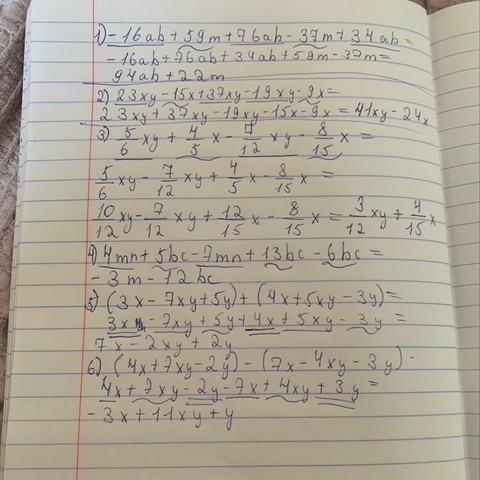 1) -16ab+59m+76ab-37m+34ab=
-16ab+76ab+34ab+59m-37m=
94ab+22m
2) 23xy-15x+37xy-19xy-9x=
23xy+37xy-19xy-15x-9x=41xy-24x
3) 5/6 xy + 4/5 x - 7/12 xy - 8/15 x =
5/6 xy - 7/12 xy + 4/5 x - 8/15 x =
10/12 xy - 7/12 xy + 12/15 x - 8/15 x = 3/12 xy + 4/15 x
4) 4mn+5bc-7mn+13bc-6bc=
-3m-12bc
5) (3x-7xy+5y)+(4x+5xy-3y)=
3x-7xy+5y+4x+5xy-3y=
7x-2xy+2y
6) (4x+7xy-2y)-(7x-4xy-3y)-
4x+7xy-2y-7x+4xy+3y=
-3x+11xy+y